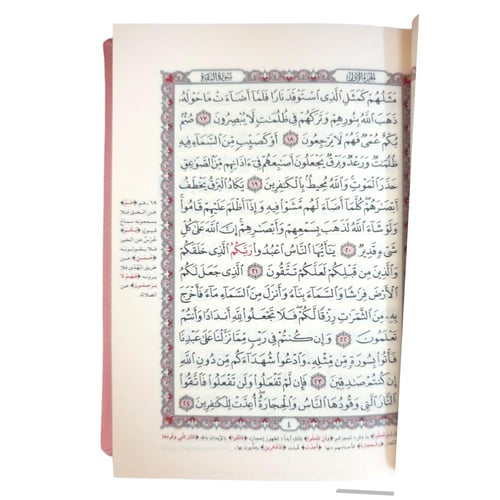 سورة البقرة الجزء الأول
مَثَلُهُمْ كَمَثَلِ ٱلَّذِى ٱسْتَوْقَدَ نَارًا فَلَمَّآ أَضَآءَتْ مَا حَوْلَهُۥ
ذَهَبَ ٱللَّهُ بِنُورِهِمْ وَتَرَكَهُمْ فِى ظُلُمَـٰتٍ لَّا يُبْصِرُونَ ١٧ صُمٌّۢ
بُكْمٌ عُمْىٌ فَهُمْ لَا يَرْجِعُونَ ١٨ أَوْ كَصَيِّبٍ مِّنَ ٱلسَّمَآءِ فِيهِ
ظُلُمَـٰتٌ وَرَعْدٌ وَبَرْقٌ يَجْعَلُونَ أَصَـٰبِعَهُمْ فِىٓ ءَاذَانِهِم مِّنَ ٱلصَّوَٰعِقِ
حَذَرَ ٱلْمَوْتِ وَٱللَّهُ مُحِيطٌۢ بِٱلْكَـٰفِرِينَ ١٩ يَكَادُ ٱلْبَرْقُ يَخْطَفُ
أَبْصَـٰرَهُمْ كُلَّمَآ أَضَآءَ لَهُم مَّشَوْا۟ فِيهِ وَإِذَآ أَظْلَمَ عَلَيْهِمْ قَامُوا۟
وَلَوْ شَآءَ ٱللَّهُ لَذَهَبَ بِسَمْعِهِمْ وَأَبْصَـٰرِهِمْ إِنَّ ٱللَّهَ عَلَىٰ كُلِّ
شَىْءٍ قَدِيرٌ ٢٠ يَـٰٓأَيُّهَا ٱلنَّاسُ ٱعْبُدُوا۟ رَبَّكُمُ ٱلَّذِى خَلَقَكُمْ
وَٱلَّذِينَ مِن قَبْلِكُمْ لَعَلَّكُمْ تَتَّقُونَ ٢١ ٱلَّذِى جَعَلَ لَكُمُ
ٱلْأَرْضَ فِرَٰشًا وَٱلسَّمَآءَ بِنَآءً وَأَنزَلَ مِنَ ٱلسَّمَآءِ مَآءً فَأَخْرَجَ
بِهِۦ مِنَ ٱلثَّمَرَٰتِ رِزْقًا لَّكُمْ فَلَا تَجْعَلُوا۟ لِلَّهِ أَندَادًا وَأَنتُمْ
تَعْلَمُونَ ٢٢ وَإِن كُنتُمْ فِى رَيْبٍ مِّمَّا نَزَّلْنَا عَلَىٰ عَبْدِنَا
فَأْتُوا۟ بِسُورَةٍ مِّن مِّثْلِهِۦ وَٱدْعُوا۟ شُهَدَآءَكُم مِّن دُونِ ٱللَّهِ
إِن كُنتُمْ صَـٰدِقِينَ ٢٣ فَإِن لَّمْ تَفْعَلُوا۟ وَلَن تَفْعَلُوا۟ فَٱتَّقُوا۟
ٱلنَّارَ ٱلَّتِى وَقُودُهَا ٱلنَّاسُ وَٱلْحِجَارَةُ أُعِدَّتْ لِلْكَـٰفِرِينَ ٢٤
٤